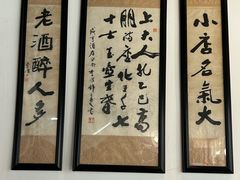 小店名氣大
上大人孔乙己高
朋滿座化三千七
十士玉壺生春
老酒醉人多